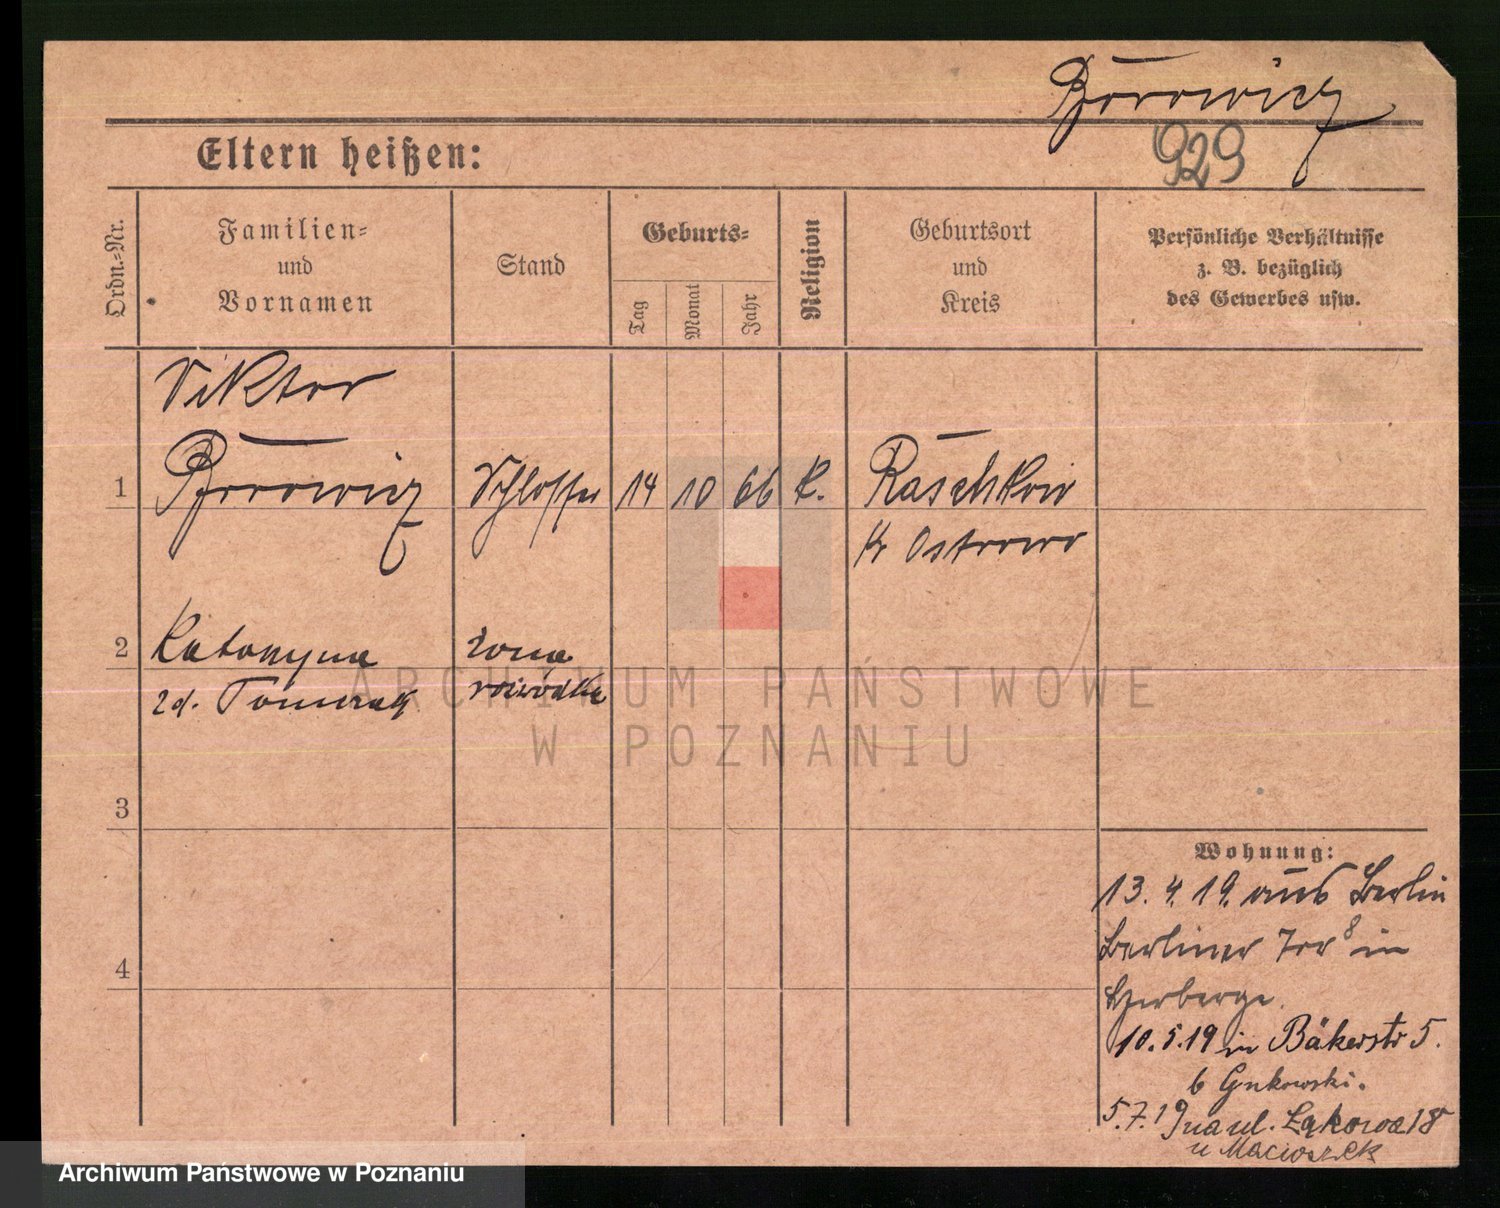 Borowicz
929
Eltern heißen:
Ordn.-Nr.
Familien-
und
Vornamen
Stand
Geburts-
Tag
Monat
Jahr
Religion
Geburtsort
und
Kreis
Persönliche Verhältnisse
z. B. bezüglich
des Gewerbes usw.
Viktor
1 Borowicz Schlosser 14 10 66 k. Raschkow
Kr Ostrowo
2 Katarzyna żona
zd. rozwódka
3
4
Wohnung:
13. 4. 19. aus Berlin
Berliner Tor 8 in
Herberge.
10. 5. 19 in Bäkerstr 5.
b Gynkowski.
5. 7. 19 na ul. Łąkowa 18
u Macioszek
ARCHIWUM PAŃSTWOWE
W POZNANIU
Archiwum Państwowe w Poznaniu